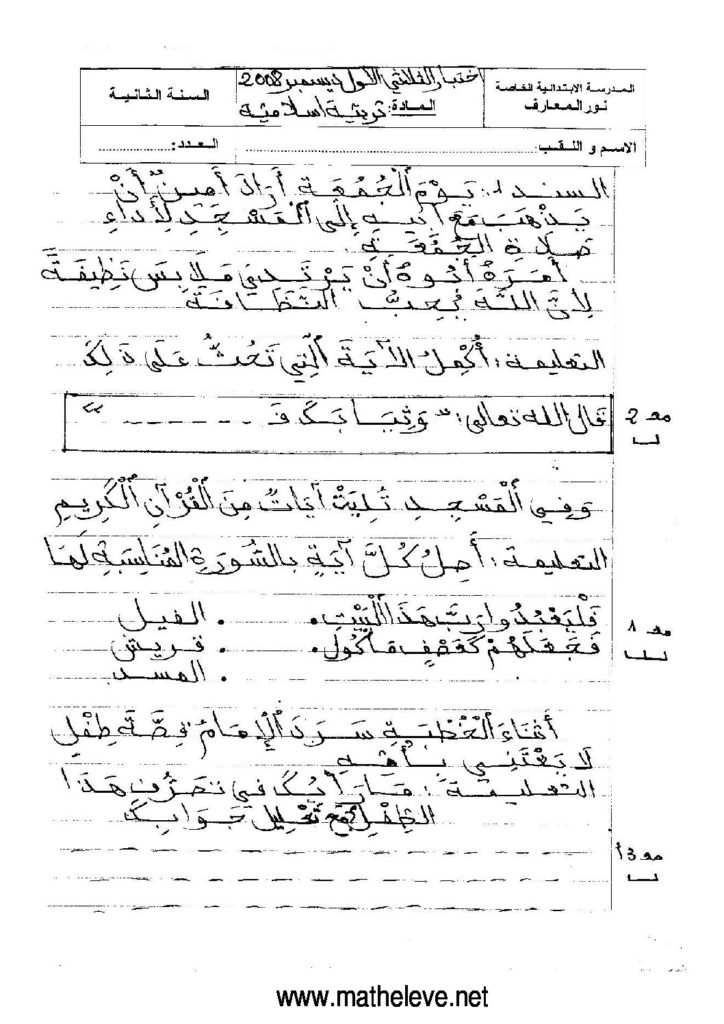 المدرسة الابتدائية الخاصة
نور المعارف
اختبار الثلاثي الأول ديسمبر 2008
المادة: تربية إسلامية
السنة الثانية
الاسم و اللقب:
العدد:
السند 1: يَوْمَ الْجُمُعَةِ أَرَادَ أَمِينٌ أَنْ
يَذْهَبَ مَعَ أَبِيهِ إِلَى الْمَسْجِدِ لِأَدَاءِ
صَلَاةِ الْجُمُعَةِ.
أَمَرَهُ أَبُوهُ أَنْ يَرْتَدِيَ مَلَابِسَ نَظِيفَةً
لِأَنَّ اللَّهَ يُحِبُّ النَّظَافَةَ
التعليمة: أُكْمِلُ الآيَةَ الَّتِي تَحُثُّ عَلَى ذَلِكَ
قَالَ الله تعالى: " وَثِيَابَكَ فَـ - - - - - - "
مع 2
وَفِي الْمَسْجِدِ تُلِيَتْ آيَاتٌ مِنَ الْقُرْآنِ الْكَرِيمِ
التعليمة: أَصِلُ كُلَّ آيَةٍ بِالسُّورَةِ المُنَاسِبَةِ لَهَا
فَلْيَعْبُدُوا رَبَّ هَذَا الْبَيْتِ. . الفيل
فَجَعَلَهُمْ كَعَصْفٍ مَأْكُولٍ. . قريش
. المسد
مع 1
أَثْنَاءَ الْخُطْبَةِ سَرَدَ الْإِمَامُ قِصَّةَ طِفْلٍ
لَا يَعْتَنِي بِأُمِّهِ
التعليمة: مَا رَأْيُكَ فِي تَصَرُّفِ هَذَا
الطِّفْلِ مَعَ تَعْلِيلِ جَوَابِكَ
مع 3 أ
www.matheleve.net